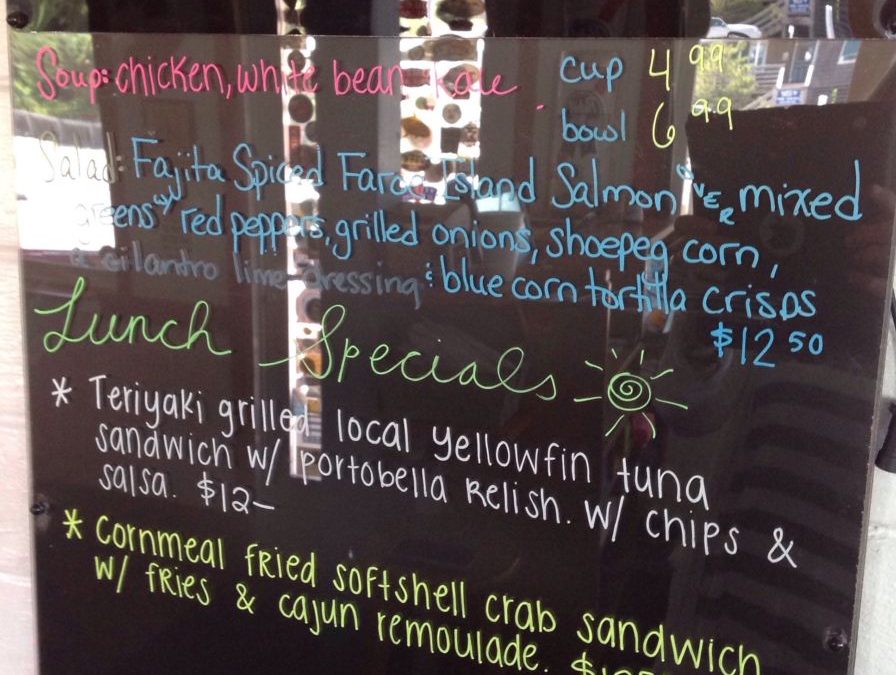 Soup: chicken, white bean, kale cup 4.99
bowl 6.99
Salad: Fajita Spiced Faroe Island Salmon OVER mixed
greens w/ red peppers, grilled onions, shoepeg corn,
a cilantro lime dressing & blue corn tortilla crisps
$12 50
Lunch Specials
* Teriyaki grilled local yellowfin tuna
sandwich w/ portobella Relish. w/ chips &
salsa. $12-
* Cornmeal fried softshell crab sandwich
w/ fries & cajun remoulade.